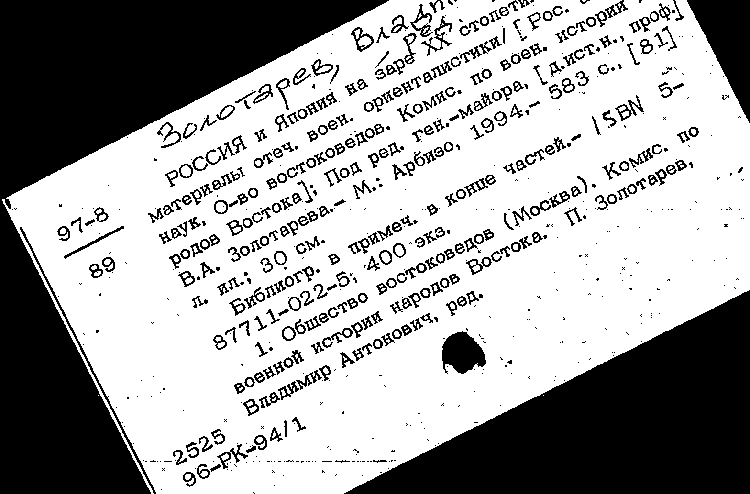 Золотарев, Влад
Ред.
РОССИЯ и Япония на заре XX столети
материалы отеч. воен. ориенталистики/ [Рос.
наук. О-во востоковедов. Комис. по воен. истории
родов Востока]; Под ред. ген.-майора, [д.ист.н., проф.]
В.А. Золотарева.- М.: Арбизо, 1994.- 583 с., [81]
л. ил.; 30 см.
Библиогр. в примеч. в конце частей.- ISBN 5-
87711-022-5; 400 экз.
1. Общество востоковедов (Москва). Комис. по
военной истории народов Востока. П. Золотарев,
Владимир Антонович, ред.
97-8
89
2525
96-РК-94/1